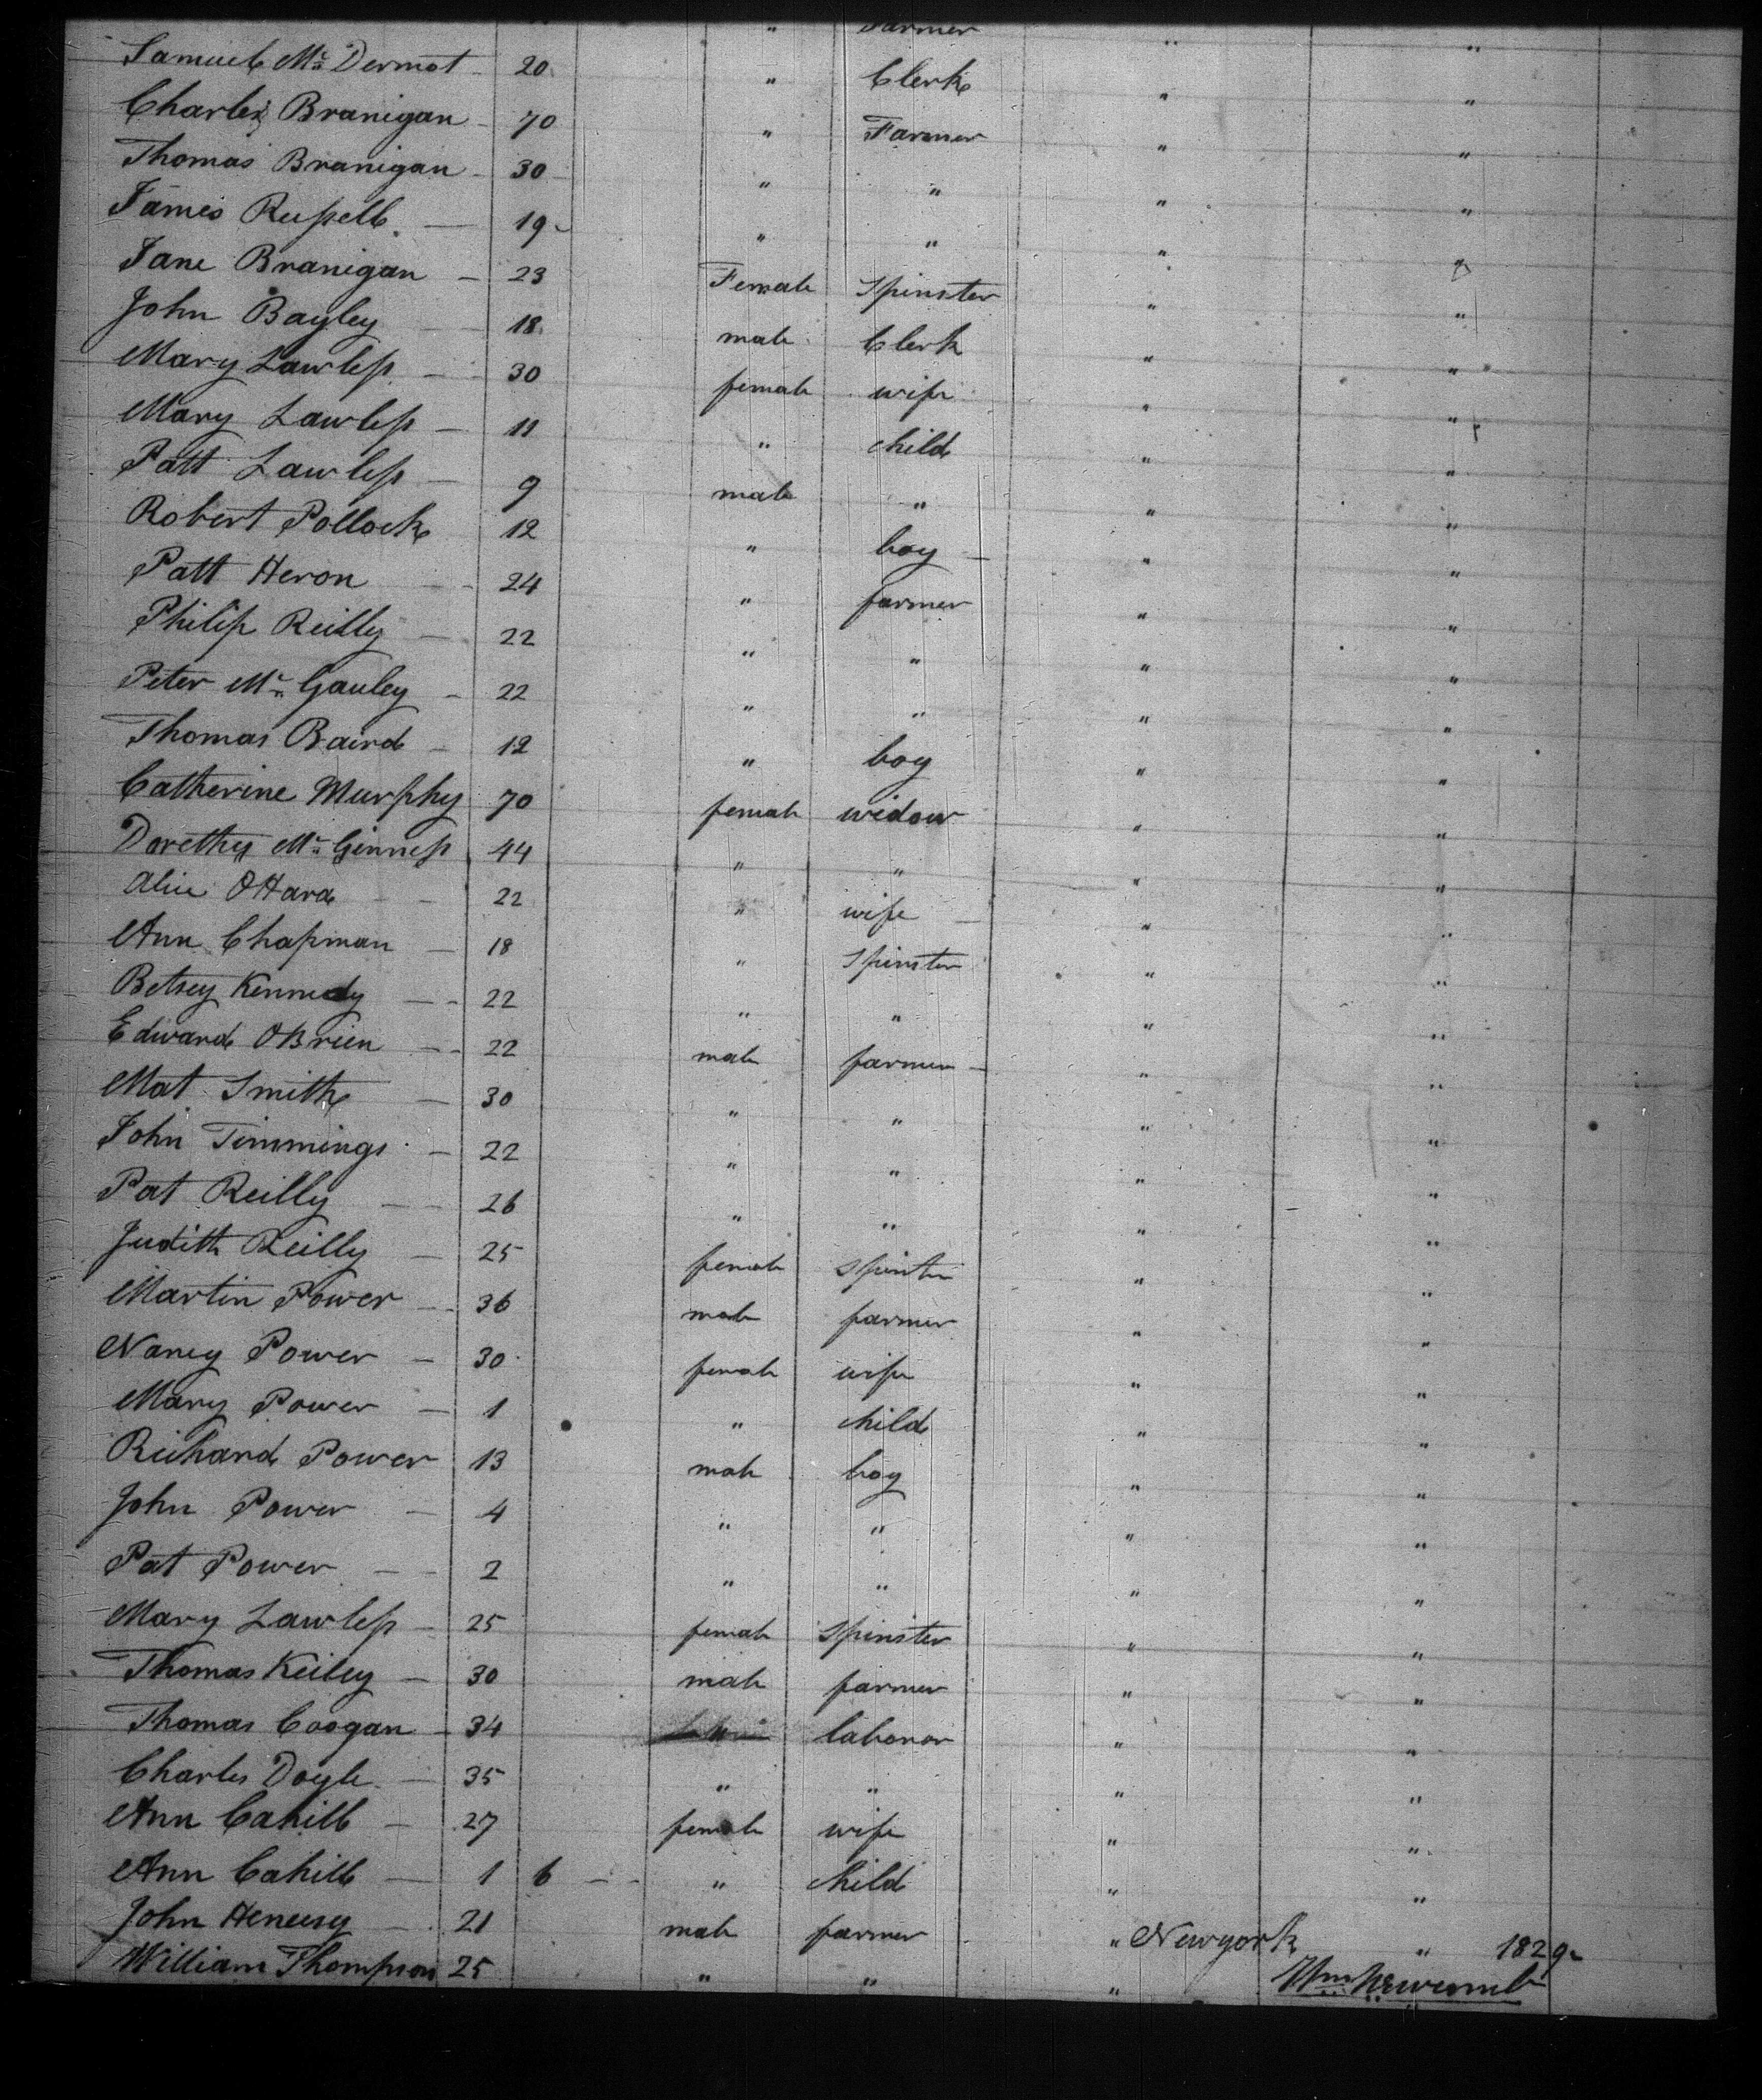 " Farmer " "
Samuel Mc Dermot - 20 " Clerk " "
Charles Branigan - 70 " Farmer " "
Thomas Branigan - 30 " " " "
James Russell. - 19 - " " " "
Jane Branigan - 23 Female Spinster " "
John Bayley - 18 male Clerk " "
Mary Lawless - 30 female wife " "
Mary Lawless - 11 " child " "
Patt Lawless - 9 male " " "
Robert Pollock 12 " boy - " "
Patt Heron - 24 " farmer " "
Philip Reilly - 22 " " " "
Peter Mc Gauley - 22 " " " "
Thomas Baird - 12 " boy " "
Catherine Murphy 70 female widow " "
Dorethy Mc Ginness 44 " " " "
Alice O Hara - - 22 " wife - " "
Ann Chapman - 18 " Spinster " "
Betsey Kennedy - - 22 " " " "
Edward O Brien - - 22 male farmer - " "
Mat Smith - 30 " " " "
John Timmings - 22 " " " "
Pat Reilly - - 26 " " " "
Judith Reilly - 25 female Spinster " "
Martin Power - - 36 male farmer " "
Nancy Power - 30 female wife " "
Mary Power - 1 " child " "
Richard Power 13 male boy " "
John Power - 4 " " " "
Pat Power - - 2 " " " "
Mary Lawless - 25 female Spinster " "
Thomas Keiley - 30 male farmer " "
Thomas Coogan - 34 " laboror " "
Charles Doyle - 35 " " " "
Ann Cahill - 27 female wife " "
Ann Cahill - 1 6 - - " child " "
John Henesey - 21 male farmer " Newyork " 1829
William Thompson 25 " " " Wm Newcomb